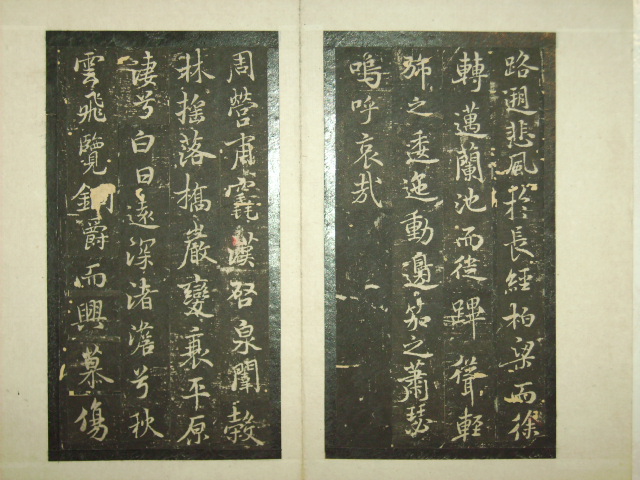 路遡悲風於長經柏梁而徐
轉邁蘭池而徙蹕聳輕
旆之逶迤動邊笳之蕭瑟
嗚呼哀哉
周營甫竁漢啓泉闈穀
林搖落橋巖變衰平原
淒兮白日遠深渚澹兮秋
雲飛覽銅爵而興慕傷